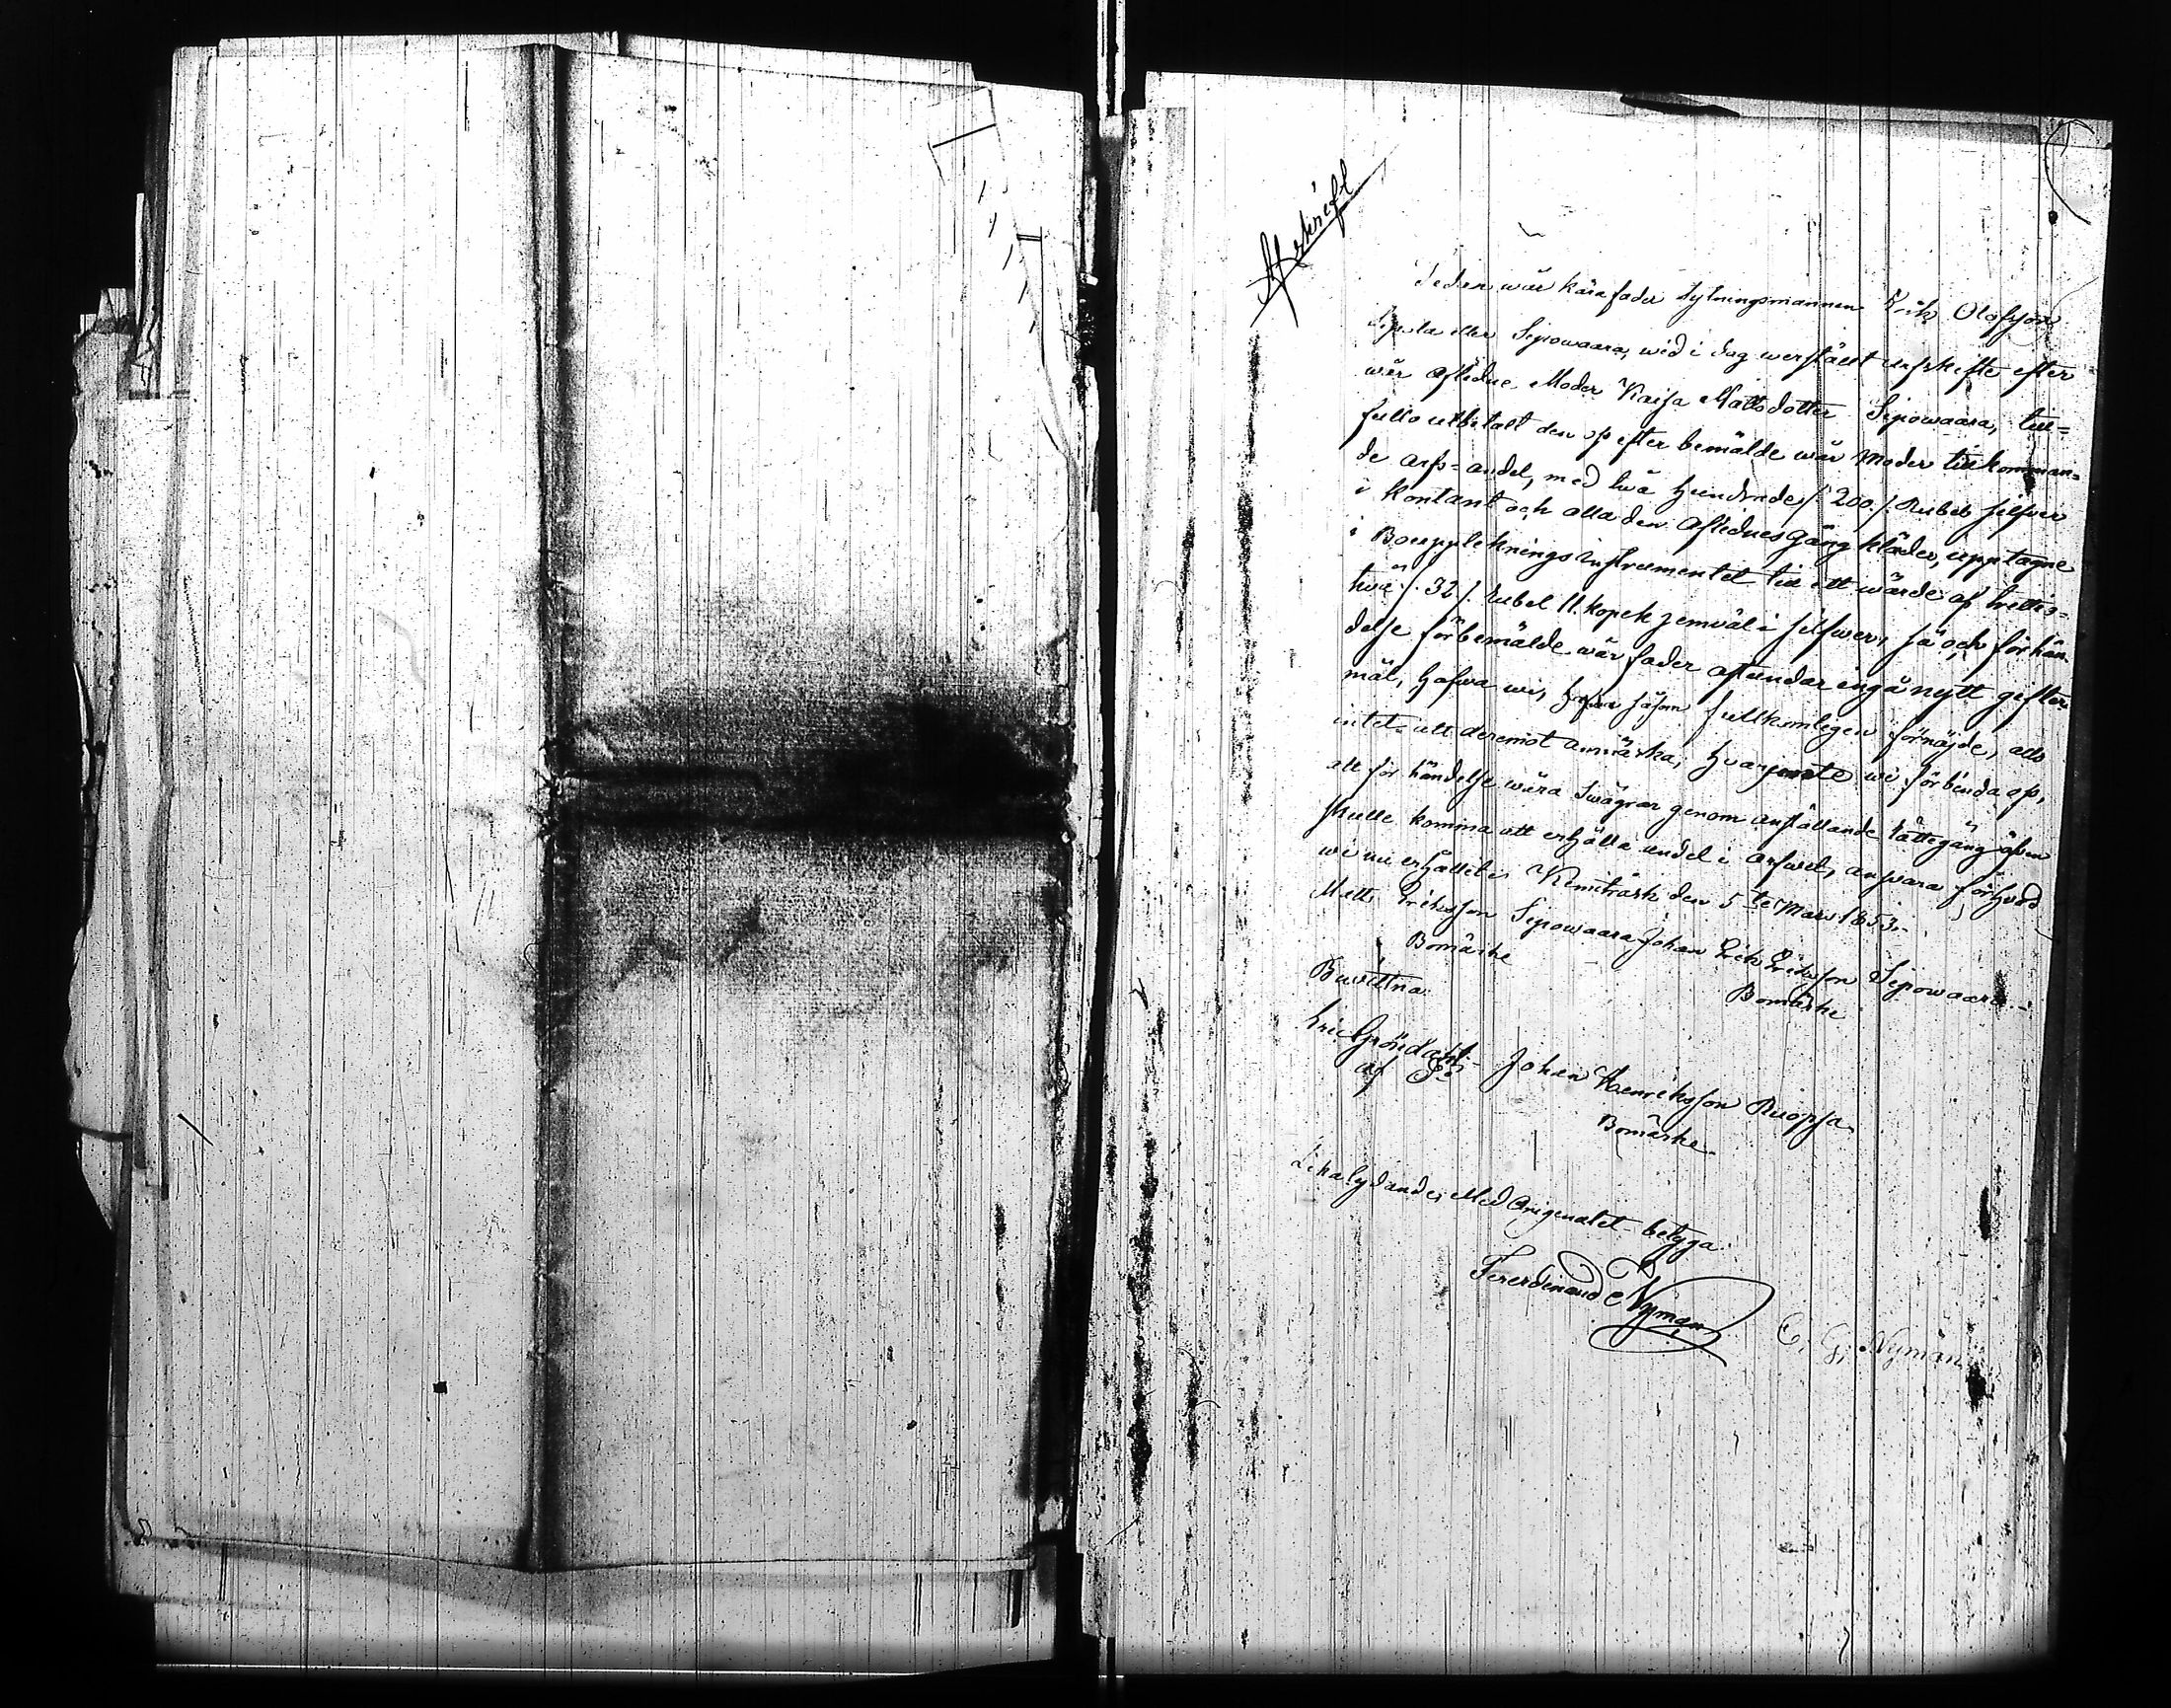 Afskrift
Sedan wår kära fader Sytningsmannen Erik Olofsson
eller Sipowaara, wid i dag werstäldt arfskifte efter
wår aflidne Moder Kaisa Mattsdotter Sipowaara, till=
fullo utbetalt den oss efter bemälde wår Moder tillkomman=
de arfs=andel, med twå hundrade /200./. Rubel silfver
i Kontant och alla den Aflidnes Gång kläder, upptagne
i Bouppteknings instrumentet till ett wärde af trettio=
twå /. 32 /. Rubel 11. kopek jemväl i silfwer, så och förhän=
delse förbemälde wår fader åstundar ingå nytt gifter=
mål, hafwa wi, såsom fullkomligen förnöjde, alls
intet att deremot anmärka, hvarjemte wi förbinda oss,
att för händelse wåra Swågrar genom anställande rättegång äfven
skulle komma att erhålla andel i arfwet, ansvara för hvad
wi nu erhållit. Kemiträsk den 5te Mars 1853.
Matts Eriksson Sipowaara Johan Erik Eriksson Sipowaara.
Bomärke Bomärke
Bevittna:
Eric Gröndahl Johan Henriksson Ruopsa
af Bomärke
Likalydande Med Originalet betyga
Fererdinand Nyman C. G. Nyman